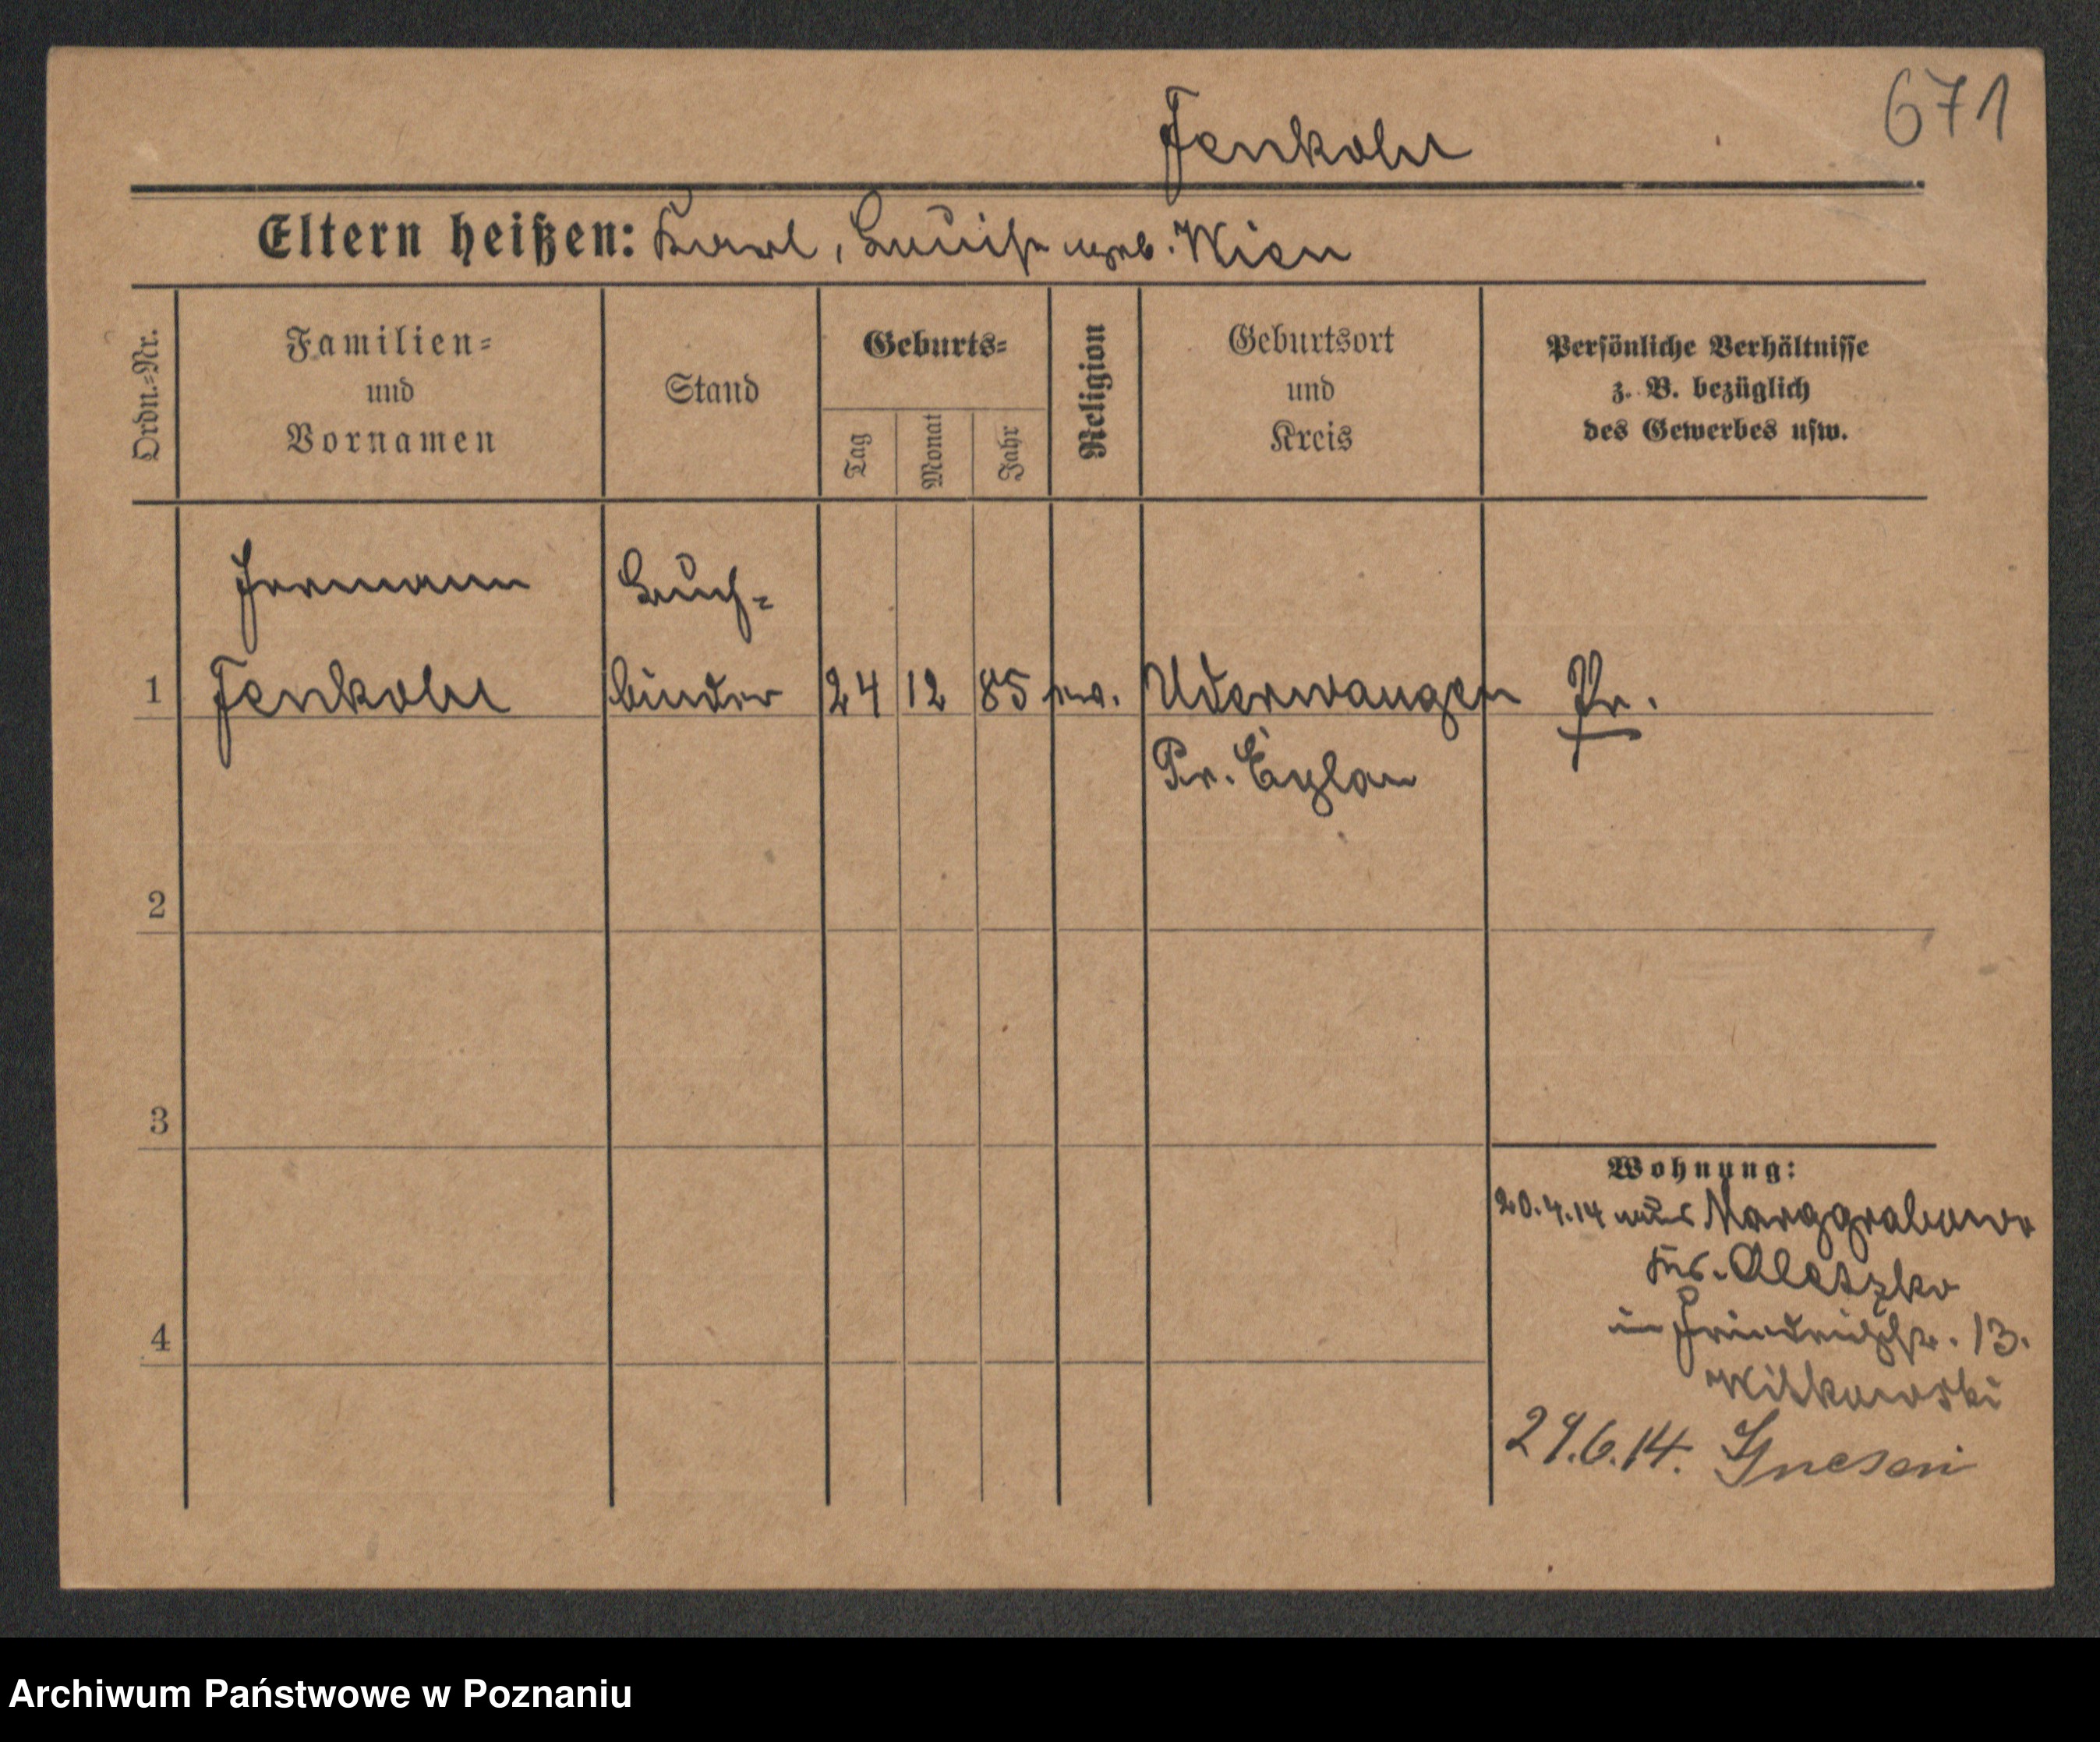 671
Fenkohl
Eltern heißen: Karl, Luise geb. Wien
Ordn.-Nr.
Familien-
und
Vornamen
Stand
Geburts-
Tag
Monat
Jahr
Religion
Geburtsort
und
Kreis
Persönliche Verhältnisse
z. B. bezüglich
des Gewerbes usw.
Hermann
Buch-
1 Fenkohl binder 24 12 85 ev. Uderwangen Pr.
Pr. Eylau
2
3
4
Wohnung:
20.4.14 aus Marggrabowa
Krs. Oletzko
in Friedrichstr. 13.
Witkowski
29.6.14. Gnesen
Archiwum Państwowe w Poznaniu